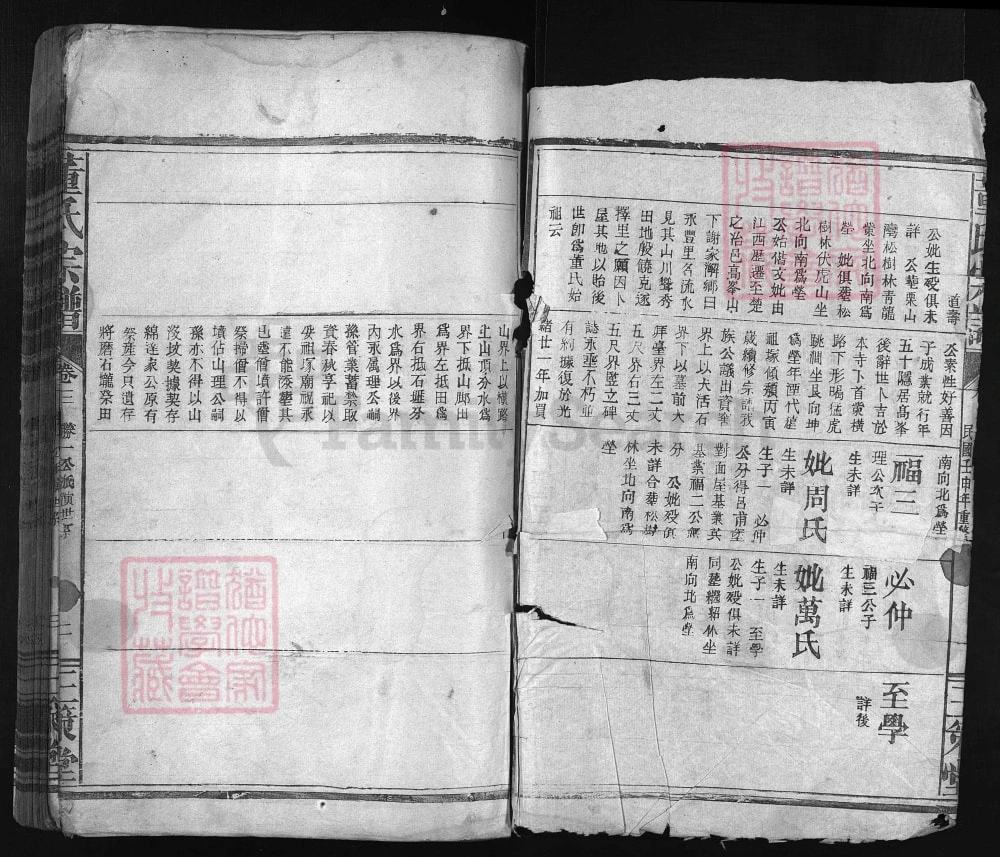 道壽
公妣生殁俱未
詳 公塟栗山
灣松樹林青龍
棠坐北向南爲
塋 妣俱塟松
樹林伏虎山坐
北向南爲塋
公始偕文妣由
江西歷遷至楚
之冶邑高峯山
下謝家澥鄉曰
永豐里名流水
見其山川聳秀
田地般饒克遂
擇里之願因卜
屋其地以貽後
世卽爲董氏始
祖云
公業性好善因
于成業就行年
五十隱居高峯
後辭世卜吉於
本寺下首黃橫
路下形曷猛虎
跳澗坐艮向坤
爲塋年湮代遠
祖塚傾頹丙寅
歲續修宗譜我
族公議出資塟
界上以大活石
界下以墓前大
拜臺界左二丈
五尺界右三丈
五尺界竪立碑
誌永垂不朽並
有約據復於光
緒廿一年加買
山界上以横路
止山頂分水爲
界下抵山脚田
爲界左抵田爲
界右抵石磋分
水爲界以後界
内永属理公祠
孫管業蓄禁取
資春秋享祀以
妥祖塚廟祝永
遠不能葬塋其
也塟僧墳許僧
祭掃僧不得以
墳佔山理公祠
孫亦不得以山
没坟契據契存
綿逹家公原有
祭產今只遺存
將磨石壠杂田
南向北爲塋
福三
理公次子
生未詳
妣周氏
生未詳
生子一 必仲
公分得呂甫墪
對面屋基業英
基業福二公無
分 公妣殁俱
未詳合塟松樹
林坐北向南爲
塋
必仲
福三公子
生未詳
妣萬氏
生未詳
生子一 至學
公妣殁俱未詳
同塟貔貅林坐
南向北爲塋
至學
詳後
民國壬申年重修
董氏宗譜
卷三
三策堂